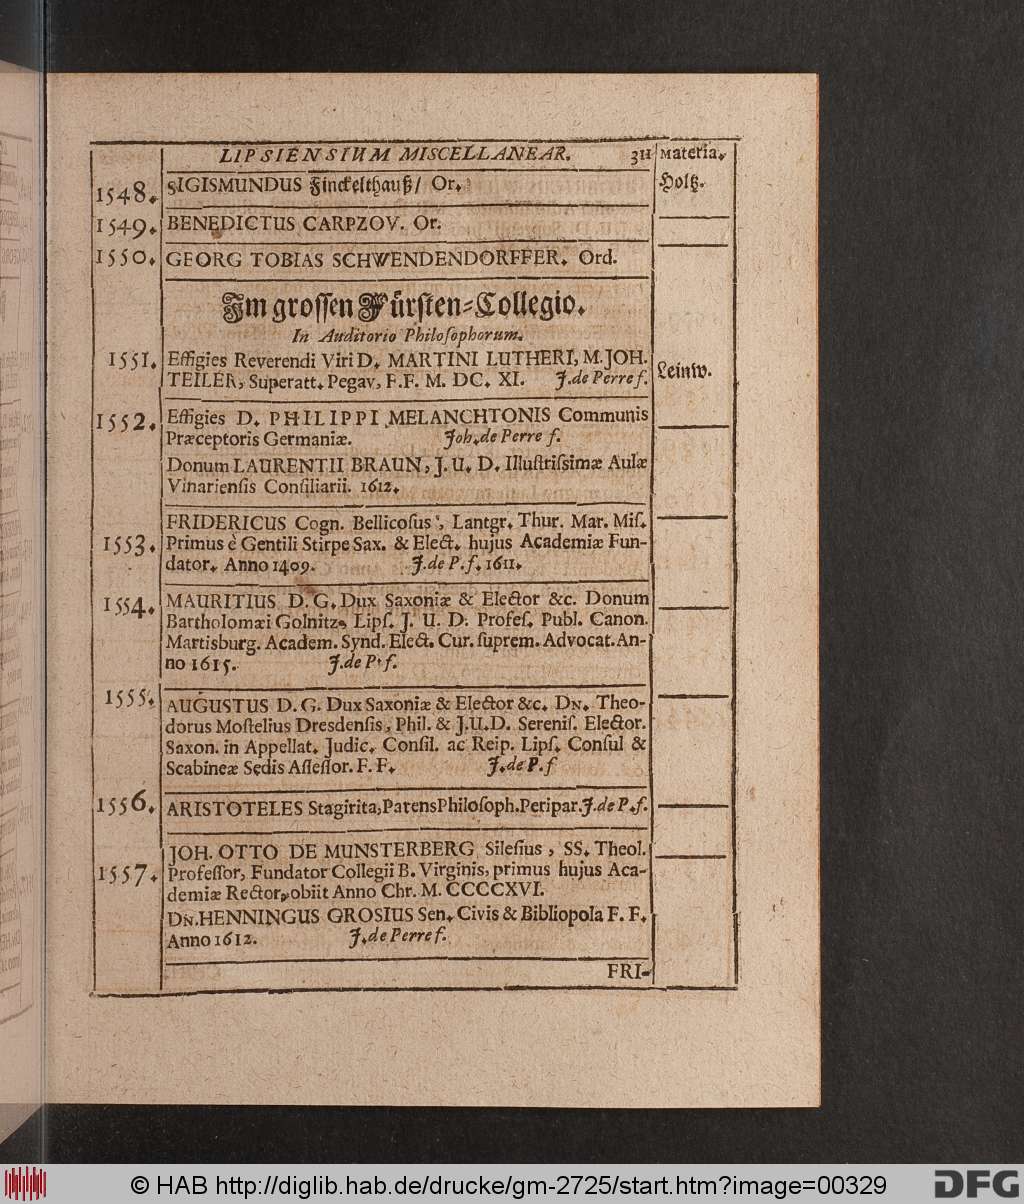 LIPSIENSIUM MISCELLANEAR. 311 Materia.
1548. SIGISMUNDUS Finckelthauß/ Or. Holtz.
1549. BENEDICTUS CARPZOV. Or.
1550. GEORG TOBIAS SCHWENDENDORFFER. Ord.
Im grossen Fürsten-Collegio.
In Auditorio Philosophorum.
1551. Effigies Reverendi Viri D. MARTINI LUTHERI, M. JOH.
TEILER, Superatt. Pegav, F.F. M. DC. XI. J. de Perre f. Leinw.
1552. Effigies D. PHILIPPI MELANCHTONIS Communis
Præceptoris Germaniæ. Joh. de Perre f.
Donum LAURENTII BRAUN, J. U. D. Illustrissimæ Aulæ
Vinariensis Consiliarii. 1612.
FRIDERICUS Cogn. Bellicosus, Lantgr. Thur. Mar. Mis.
1553. Primus è Gentili Stirpe Sax. & Elect. hujus Academiæ Fun-
dator. Anno 1409. J. de P. f. 1611.
1554. MAURITIUS D. G. Dux Saxoniæ & Elector &c. Donum
Bartholomæi Golnitz, Lips. J. U. D. Profes. Publ. Canon.
Martisburg. Academ. Synd. Elect. Cur. suprem. Advocat. An-
no 1615. J. de P. f.
1555. AUGUSTUS D. G. Dux Saxoniæ & Elector &c. DN. Theo-
dorus Mostelius Dresdensis, Phil. & J.U.D. Serenis. Elector.
Saxon. in Appellat. Judic. Consil. ac Reip. Lips. Consul &
Scabineæ Sedis Assessor. F. F. J. de P. f
1556. ARISTOTELES Stagirita, Parens Philosoph. Peripar. J. de P. f.
JOH. OTTO DE MUNSTERBERG Silesius, SS. Theol.
1557. Professor, Fundator Collegii B. Virginis, primus hujus Aca-
demiæ Rector, obiit Anno Chr. M. CCCCXVI.
DN. HENNINGUS GROSIUS Sen. Civis & Bibliopola F. F.
Anno 1612. J. de Perre f.
FRI-
© HAB http://diglib.hab.de/drucke/gm-2725/start.htm?image=00329
DFG